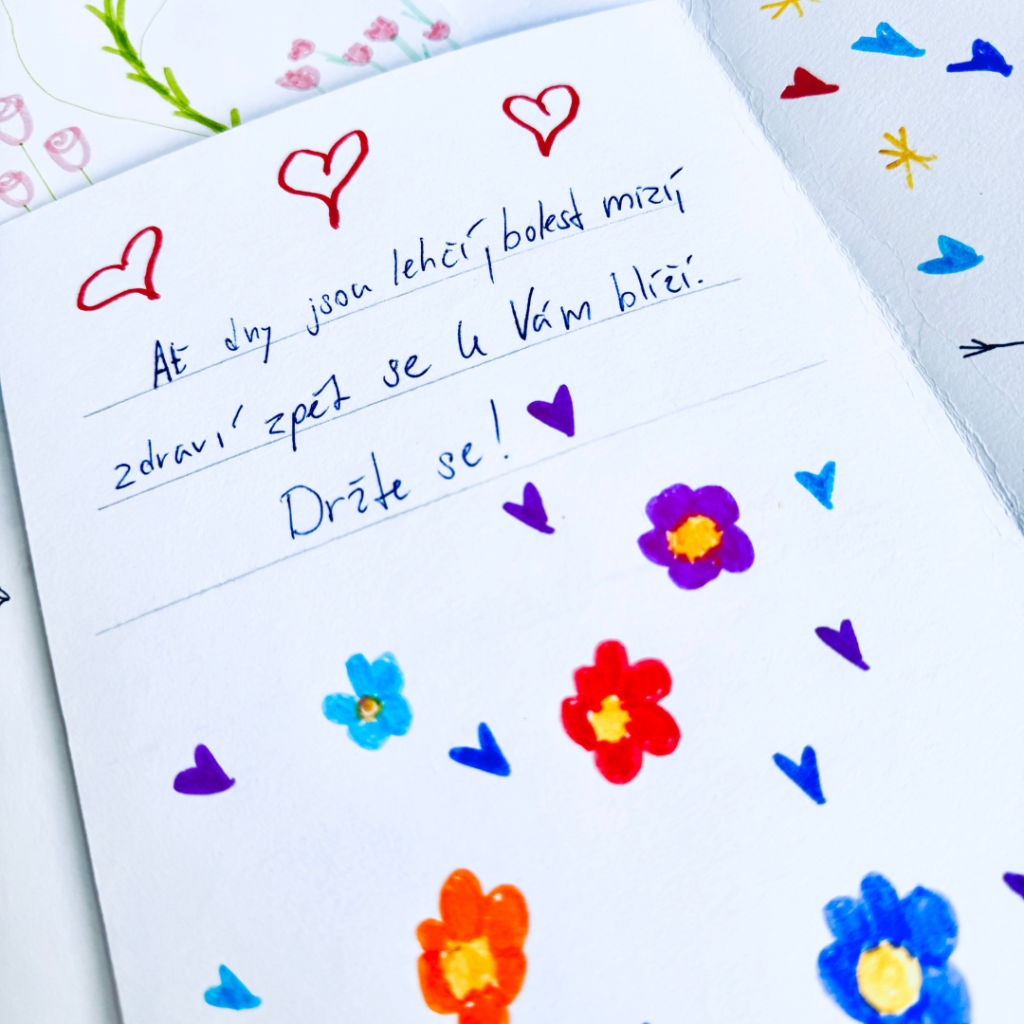 Ať dny jsou lehčí, bolest mizí,
zdraví zpět se k Vám blíží.
Držte se!